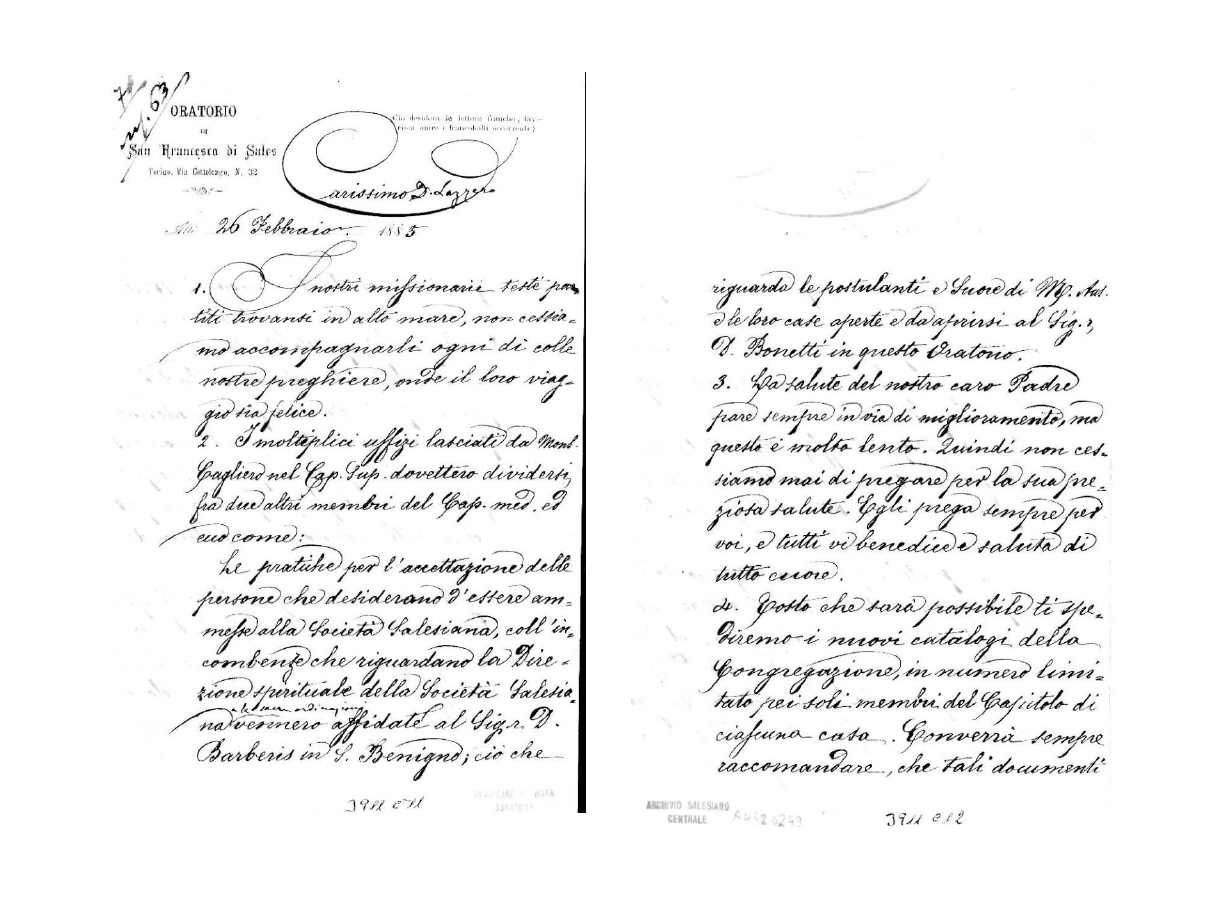 63
ORATORIO
DI
San Francesco di Sales
Torino, Via Cottolengo, N. 32
(Chi desidera le lettere franche, favo-
risca unire i francobolli occorrenti)
Carissimo D. Lazzero
26 Febbraio 1885
1. I nostri missionarii testè par
titi trovansi in alto mare, non cessia=
mo accompagnarli ogni dì colle
nostre preghiere, onde il loro viag=
gio sia felice.
2. I molteplici uffizi lasciati da Mons.
Cagliero nel Cap. Sup. dovettero dividersi
fra due altri membri del Cap. med. ed
ecco come:
Le pratiche per l'accettazione delle
persone che desiderano d'essere am=
messe alla Società Salesiana, coll'in=
combenze che riguardano la Dire=
zione spirituale della Società Salesia
na vennero affidate al Sig.r D.
Barberis in S. Benigno; ciò che
3911 C11
riguarda le postulanti e Suore di M. Aus.
e le loro case aperte e da aprirsi al Sig.r
D. Bonetti in questo Oratorio.
3. La salute del nostro caro Padre
pare sempre in via di miglioramento, ma
questo è molto lento. Quindi non ces=
siamo mai di pregare per la sua pre=
ziosa salute. Egli prega sempre per
voi, e tutti vi benedice e saluta di
tutto cuore.
4. Tosto che sarà possibile ti spe=
diremo i nuovi catalogi della
Congregazione, in numero limi=
tato pei soli membri del Capitolo di
ciascuna casa. Converrà sempre
raccomandare, che tali documenti
ARCHIVIO SALESIANO
CENTRALE
3911 C12